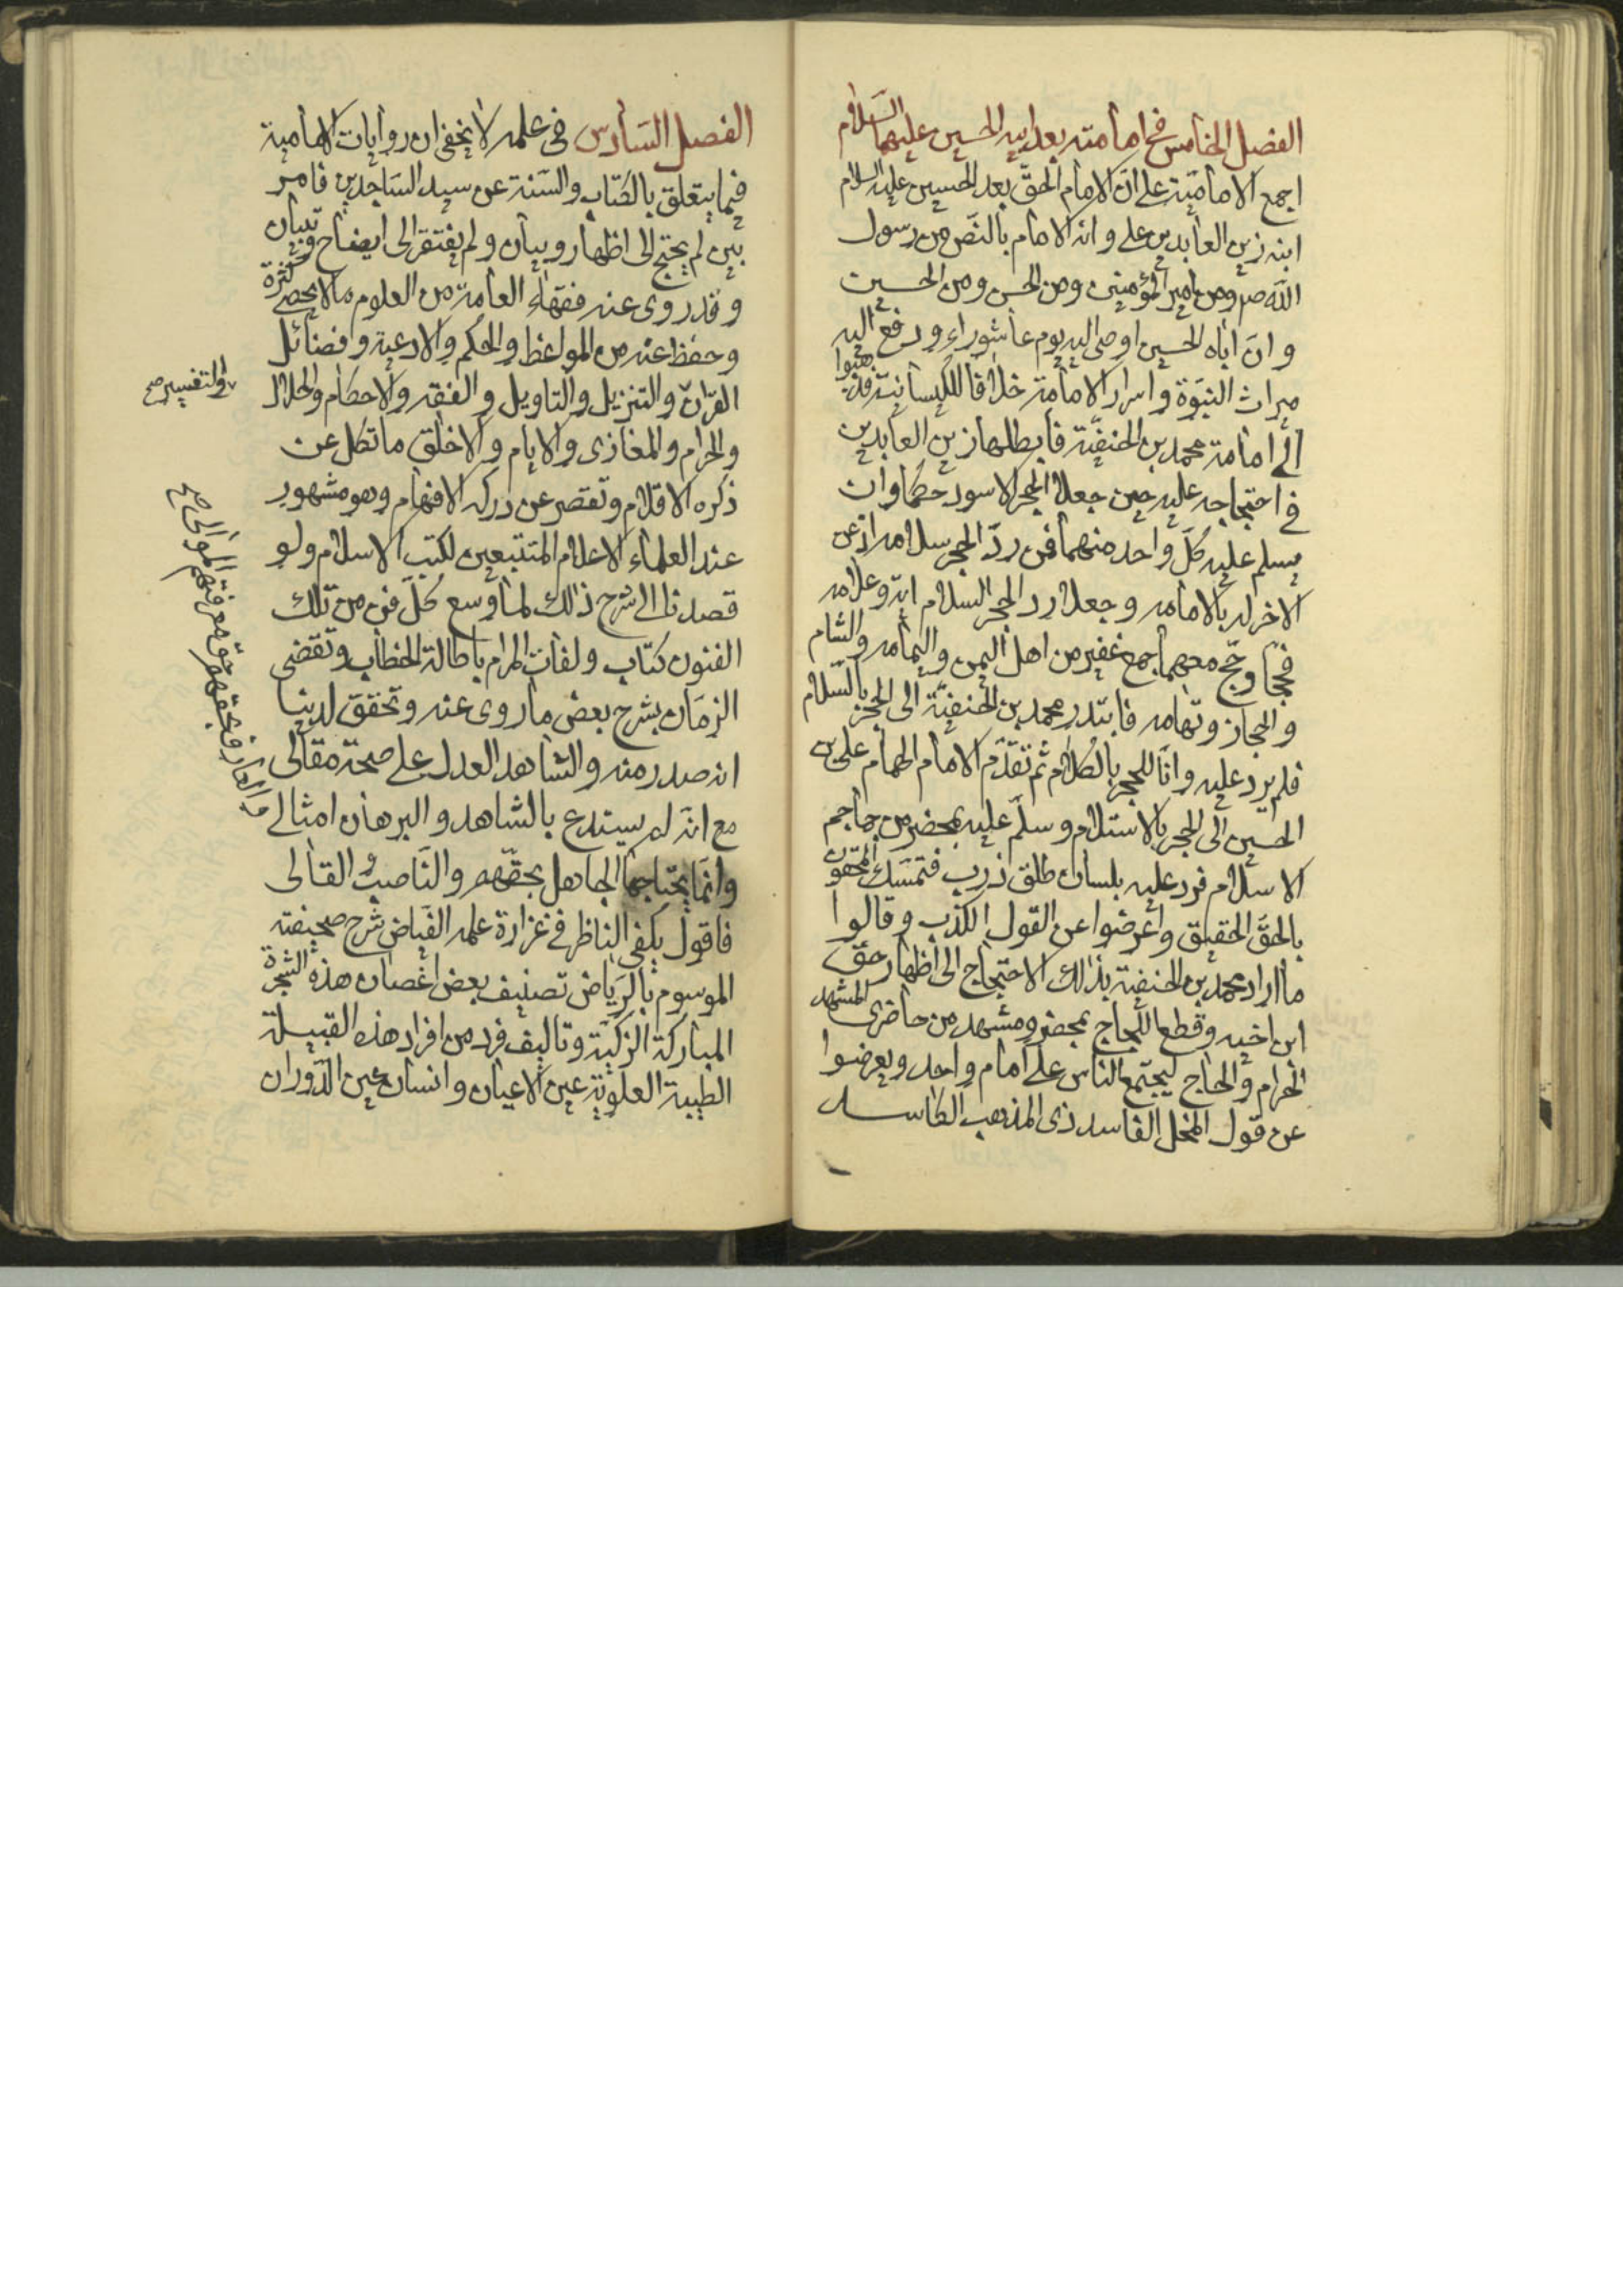 الفصل الخامس في امامته بعد ابيه الحسين عليهما السلام
اجمع الامامية على ان الامام الحق بعد الحسين عليه السلام
ابنه زين العابدين علي وانه الامام بالنص من رسول
الله ص ومن امير المؤمنين ومن الحسن ومن الحسين
وان اباه الحسين اوصى اليه يوم عاشوراء ودفع اليه
ميراث النبوة واسرار الامامة خلافا للكيسانية فذهبوا
الى امامة محمد بن الحنفية فابطلها زين العابدين
في احتجاجه عليه حين جعلا الحجر الاسود حكما وان
يسلم عليه كل واحد منهما فمن رد الحجر سلامه اذعن
الاخر له بالامامه وجعلا رد الحجر السلام اية وعلامه
فحجا وحج معهما جمع غفير من اهل اليمن واليمامه والشام
والحجاز وتهامه فابتدر محمد بن الحنفية الى الحجر بالسلام
فلم يرد عليه وانا للحجر بالكلام ثم تقدم الامام الهمام علي بن
الحسين الى الحجر بالاستلام وسلم عليه بمحضر من جماجم
الاسلام فرد عليه بلسان طلق ذرب فتمسك المحقون
بالحق الحقيق واعرضوا عن القول الكذب وقالوا
ما اراد محمد بن الحنفية بذلك الاحتجاج الى اظهار حق
ابن اخيه وقطع اللجاج بمحضر ومشهد من حاضري المشهد
الحرام والحاج ليجتمع الناس على امام واحد ويعرضوا
عن قول المخل الفاسد ذي المذهب الكاسد
الفصل السادس في علمه لا يخفى ان روايات الامامية
فيما يتعلق بالكتاب والسنة عن سيد الساجدين فامر
بين لم يحتج الى اظهار وبيان ولم يفتقر الى ايضاح وتبيان
وقد روى عنه فقهاء العامة من العلوم ما لا يحصى كثرة
وحفظ عنه من المواعظ والحكم والادعية وفضائل
القرآن والتنزيل والتاويل والفقه والاحكام والحلال
والتفسير صح
والحرام والمغازي والايام والاخلاق ما تكل عن
ذكره الاقلام وتقصر عن دركه الافهام وهو مشهور
عند العلماء الاعلام المتتبعين لكتب الاسلام ولو
قصدنا الى شرح ذلك لما وسع كل فن من تلك
الفنون كتاب ولفات المرام باطالة الخطاب وتقضى
الزمان بشرح بعض ما روي عنه وتحقق لدينا
انه صدر منه والشاهد العدل على صحة مقالي
مع انه لم يستدع بالشاهد والبرهان امثالي
العارف بحقهم حق معرفتهم الموالي صح
وانما يحتاجها الجاهل بحقهم والناصب القالي
فاقول يكفي الناظر في غزارة علمه الفياض شرح صحيفته
الموسوم بالرياض تصنيف بعض اغصان هذه الشجرة
المباركة الزكية وتاليف فرد من افراد هذه القبيلة
الطيبة العلوية عين الاعيان وانسان عين الدوران